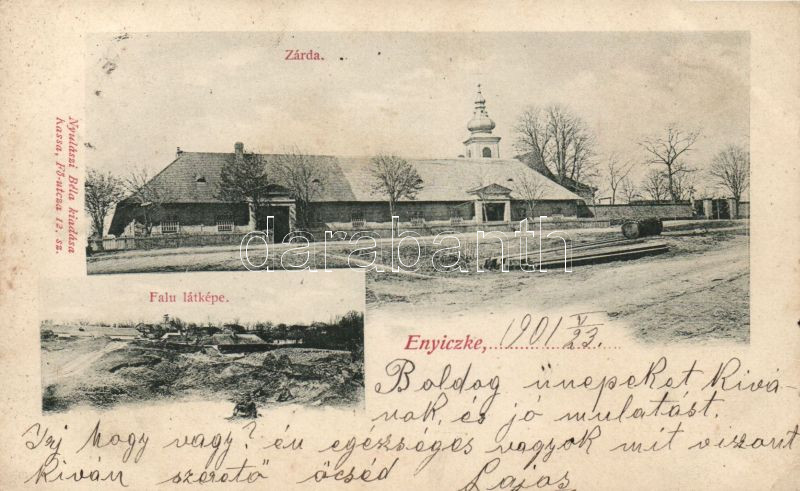 Zárda.
Nyulászi Béla kiadása
Kassa, Fő-utcza 12. sz.
darabanth
Falu látképe.
Enyiczke, 1901 V/23.
Boldog ünnepeket kivá-
nok, és jó mulatást.
Irj hogy vagy? én egézségés vagyok mit viszont
kiván szerető öcséd Lajos